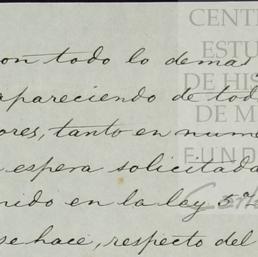 CENT
ESTU
on todo lo demas
DE HIS
apareciendo de tod
DE M
ores, tanto en nume
FUND
espera solicitada
nido en la ley 5ª
se hace, respecto del